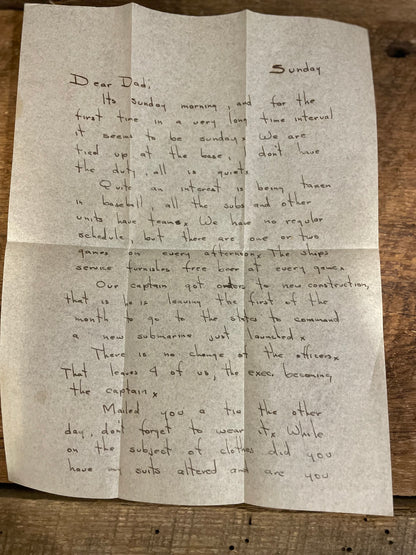 Sunday
Dear Dad;
Its sunday morning, and for the
first time in a very long time interval
it seems to be sunday x We are
tied up at the base, don't have
the duty, all is quiet x
Quite an interest is being taken
in baseball, all the subs and other
units have teams x We have no regular
schedule, but there are one or two
games on every afternoon x The ships
service furnishes free beer at every game x
Our captain got orders to new construction,
that is he is leaving the first of the
month to go to the states to command
a new submarine just launched x
There is no change of the officers x
That leaves 9 of us, the exec. becoming
the captain x
Mailed you a tie the other
day, don't forget to wear it x While
on the subject of clothes did you
have my suits altered and are you